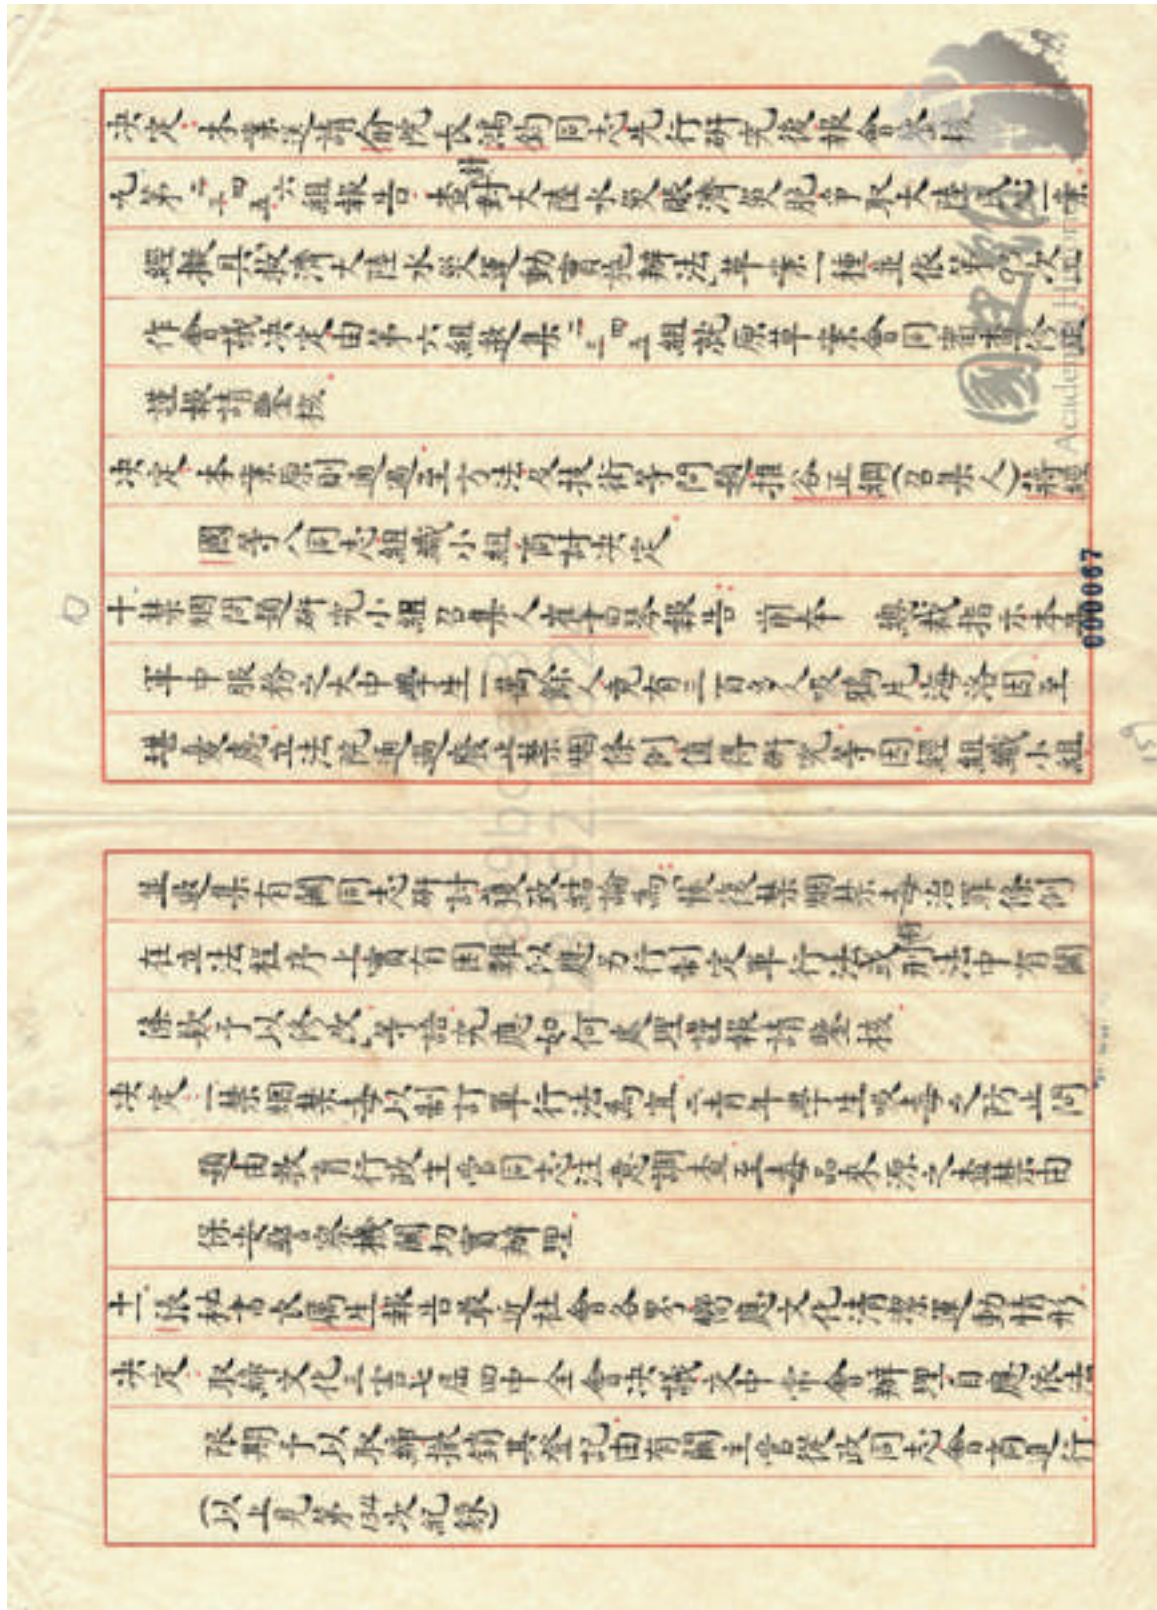 決定：本案送請俞院長鴻鈞同志先行研究後報會鑒核
九第二、三、四、五、六組報告：查對大陸水災賑濟災胞爭取大陸民心一案
經擬具救濟大陸水災運動實施辦法草案一種並依第 次工
作會議決定由第六組邀集二、三、四、五組就原草案會同
謹報請鑒核
決定：本案原則通過至方法及技術等問題推谷正綱(召集人)蔣經
國等八同志組織小組商討決定
十禁烟問題研究小組召集人崔書琴報告：前奉 總裁指示本
軍中服務之大中學生一萬餘人竟有三百多人吸鴉片海洛因至
堪憂慮立法院通過廢止禁烟條例值得研究等因經組織小組
並邀集有關同志研討獲致結論為：恢復禁烟禁毒治罪條例
在立法程序上實有困難似應另行制定單行法或將刑法中有關
條款予以修改等語究應如何處理謹報請鑒核
決定：一禁烟禁毒以制訂單行法為宜二青年學生吸毒之防止問
題由教育行政主管同志注意調查至毒品來源之查禁由
保安警察機關切實辦理
十一張秘書長厲生報告最近社會各界響應文化清潔運動情形
決定：取締文化三害七屆四中全會決議交中常會辦理自應依法
限期予以取締撤銷其登記由有關主管從政同志會商進行
(以上見第134次紀錄)
000067
Academia Historica
國史館